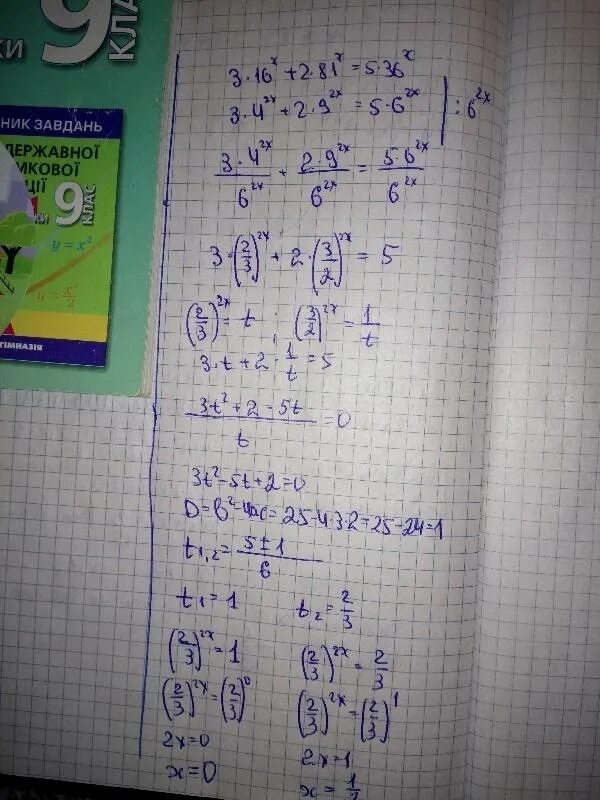 9 КЛА
КИ
НИК ЗАВДАНЬ
ДЕРЖАВНОЇ
КИ 9 КЛАС
y = x²
y = x²/2
ГІМНАЗІЯ
3·16^x + 2·81^x = 5·36^x
3·4^2x + 2·9^2x = 5·6^2x | : 6^2x
3·4^2x/6^2x + 2·9^2x/6^2x = 5·6^2x/6^2x
3·(2/3)^2x + 2·(3/2)^2x = 5
(2/3)^2x = t ; (3/2)^2x = 1/t
3·t + 2·1/t = 5
3t² + 2 - 5t/t = 0
3t² - 5t + 2 = 0
D = b² - 4ac = 25 - 4·3·2 = 25 - 24 = 1
t1,2 = 5±1/6
t1 = 1 t2 = 2/3
(2/3)^2x = 1 (2/3)^2x = 2/3
(2/3)^2x = (2/3)^0 (2/3)^2x = (2/3)^1
2x = 0 2x = 1
x = 0 x = 1/2